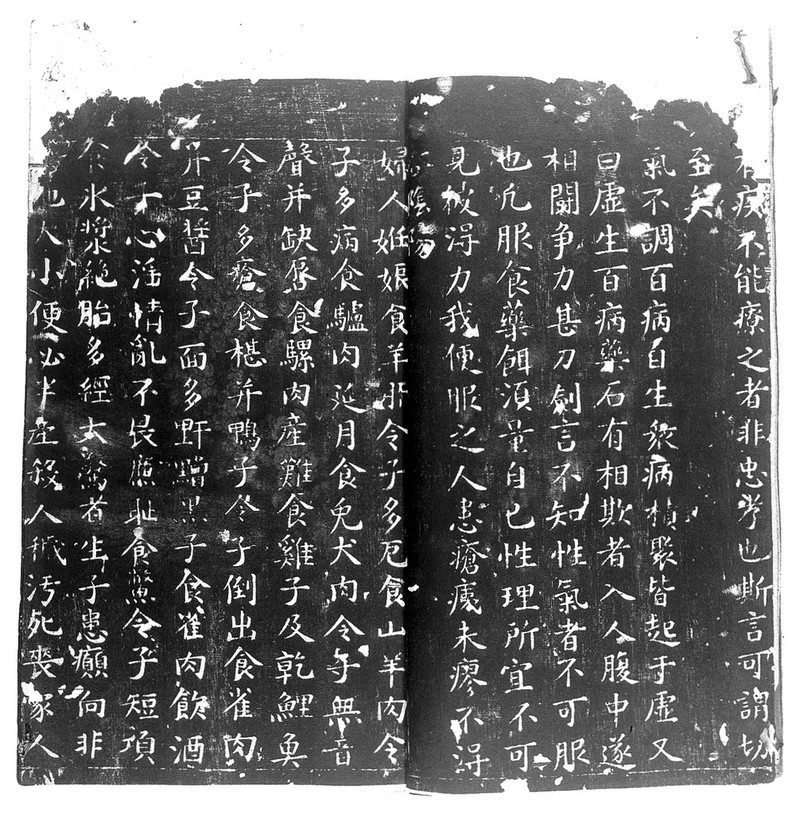 疾不能療之者非忠孝也斯言可謂切
至矣
氣不調百病自生衆病積聚皆起于虛又
曰虛生百病藥石有相欺者入人腹中遂
相鬪争力甚刀劍言不知性氣者不可服
也凢服食藥餌湏量自己性理所宜不可
見彼淂力我便服之人患瘡痍未瘳不淂
陰陽
婦人妊娠食羊肝令子多厄食山羊肉令
子多病食驢肉延月食兔犬肉令子無音
聲并缺脣食騾肉產難食雞子及乾鯉魚
令子多瘡食椹并鴨子令子倒出食雀肉
并豆醬令子面多皯䵴黑子食雀肉飲酒
令子心滛情亂不畏羞恥食鱉令子短項
食氷漿絶胎多經大驚者生子患癲向非
地大小便必半產殺人穢汚死喪家人